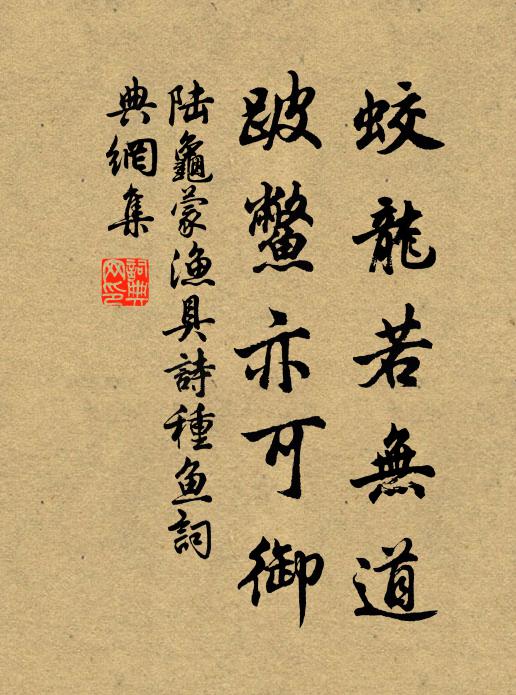 蛟龍若無道
跛鱉亦可御
陆龜蒙漁具詩種魚詞
典網集
詞典
网印